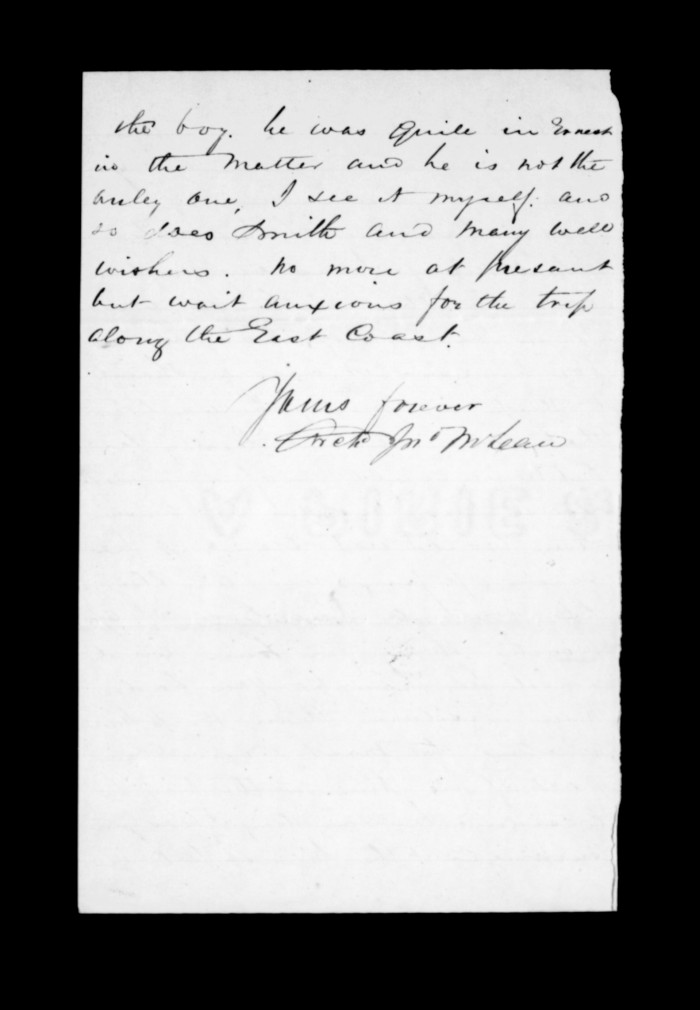 the boy. he was quite in Ernest
in the matter and he is not the
onley one, I see it myself. and
so does Smith and many well
wishers. no more at presant
but wait anxious for the trip
along the East Coast.
Yours forever
Archd Jno McLean